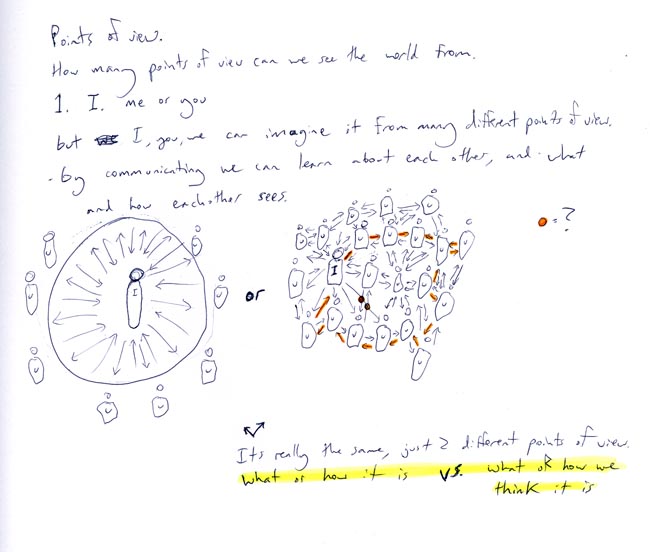 Points of view.
How many points of view can we see the world from.
1. I. me or you
but I, you, we can imagine it from many different points of view.
- by communicating we can learn about each other, and what
and how each other sees.
I
or
I
= ?
Its really the same, just 2 different points of view.
what or how it is vs. what or how we
think it is